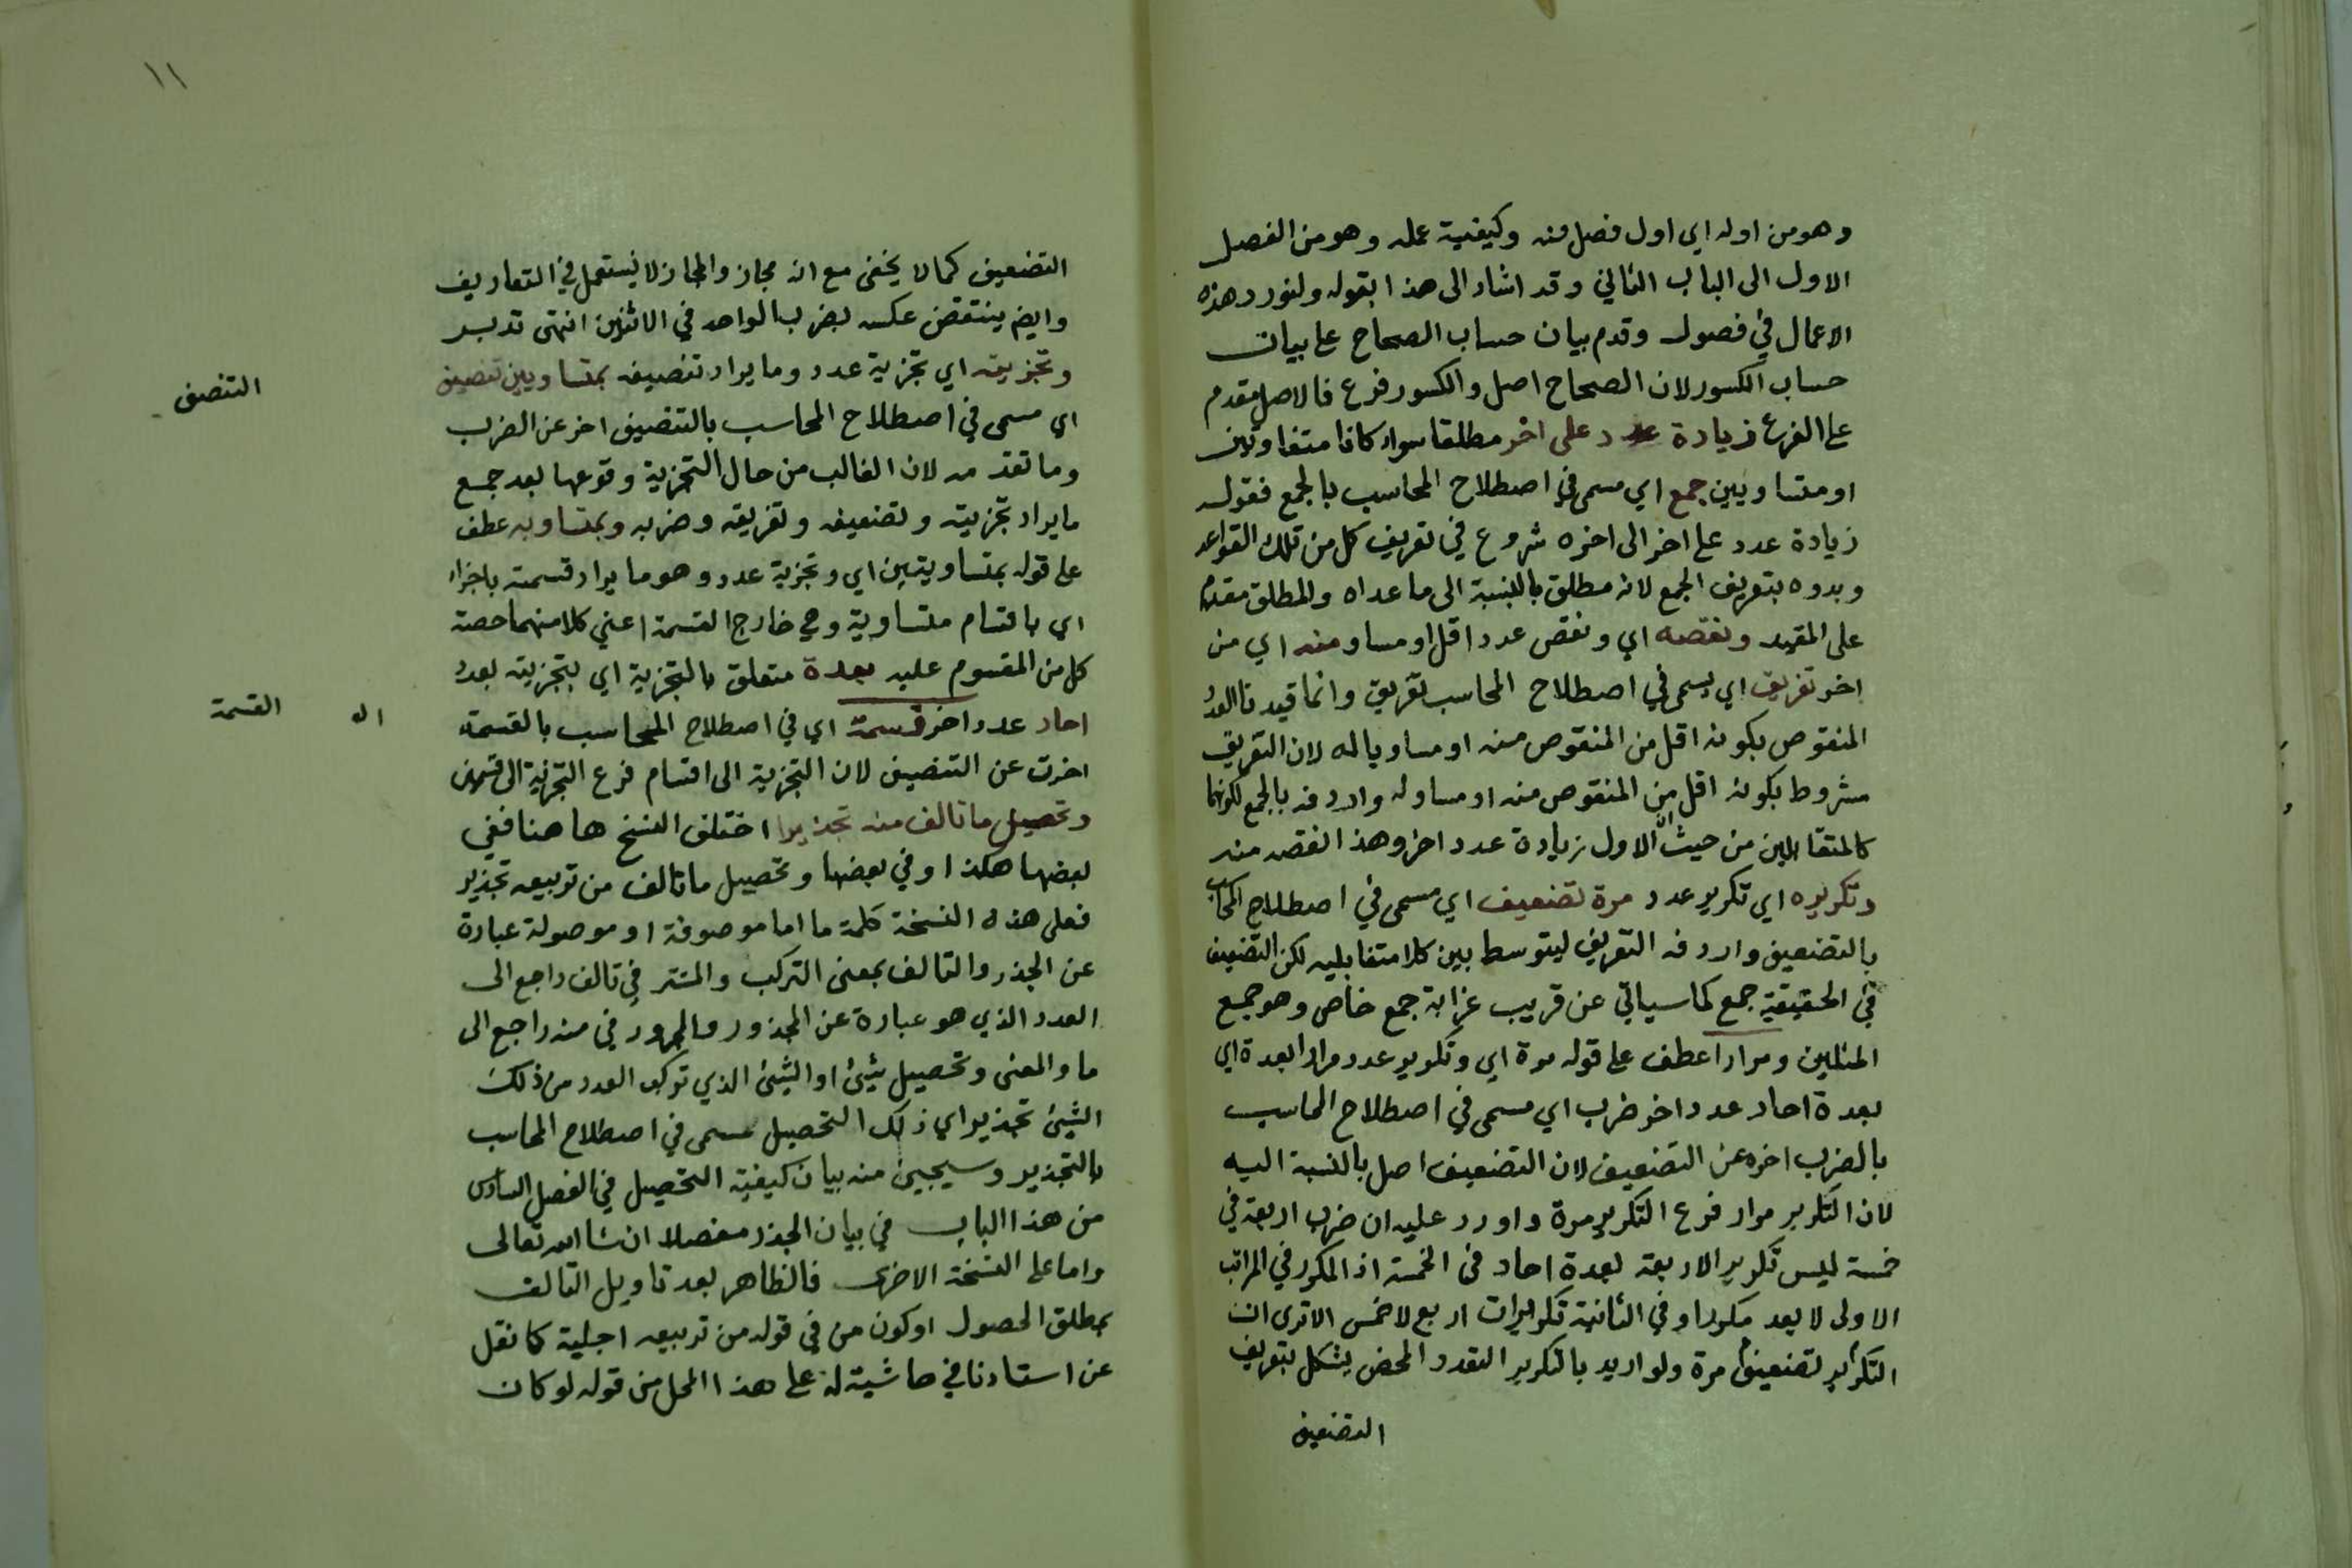 وهو من اوله اي اول فصل منه وكيفية عمله وهو من الفصل
الاول الى الباب الثاني وقد اشار الى هذا بقوله ولنورد هذه
الاعمال في فصول وقدم بيان حساب الصحاح على بيان
حساب الكسور لان الصحاح اصل والكسور فرع فالاصل مقدم
على الفرع زيادة عدد على اخر مطلقا سواء كانا متفاوتين
او متساويين جمع اي مسمى في اصطلاح المحاسب بالجمع فقوله
زيادة عدد على اخر الى اخره شروع في تعريف كل من تلك القواعد
وبدوه بتعريف الجمع لانه مطلق بالنسبة الى ما عداه والمطلق مقدم
على المقيد ونقصه اي ونقص عدد اقل او مساو منه اي من
اخر تفريق اي يسمى في اصطلاح المحاسب تفريق وانما قيدنا العدد
المنقوص بكونه اقل من المنقوص منه او مساويا له لان التفريق
مشروط بكونه اقل من المنقوص منه او مساو له واردفه بالجمع لكونهما
كالمتقابلين من حيث ان الاول زيادة عدد اخر وهذا نقصه منه
وتكريره اي تكرير عدد مرة تضعيف اي مسمى في اصطلاح المحاسب
بالتضعيف واردفه التعريف ليتوسط بين كلا متقابليه لكن التضعيف
في الحقيقة جمع كما سياتي عن قريب غرابة جمع خاص وهو جمع
المثلين ومرارا عطف على قوله مرة اي وتكرير عدد مرارا بعدة اي
بعدة احاد عدد اخر ضرب اي مسمى في اصطلاح المحاسب
بالضرب اخره عن التضعيف لان التضعيف اصل بالنسبة اليه
لان التكرير مرار فرع التكرير مرة واورد عليه ان ضرب اربعة في
خمسة ليس تكرير الاربعة بعدة احاد في الخمسة اذ المكرر في المراتب
الاولى لا يعد مكررا وفي الثانية تكريرات اربع لا خمس الا ترى ان
التكرير تضعيف مرة ولو اريد بالتكرير التعدد المحض يشكل بتعريف
التضعيف
١١
التضعيف كما لا يخفى مع انه مجاز والمجاز لا يستعمل في التعاريف
وايضم ينتقض عكسه بضرب الواحد في الاثنين انتهى تدبر
وتجزيته اي تجزية عدد وما يراد تنصيفه بمتساويين تنصيف
اي مسمى في اصطلاح المحاسب بالتنصيف اخر عن الضرب
وما تقدمه لان الغالب من حال التجزية وقوعها بعد جمع
ما يراد تجزيته وتضعيفه وتفريقه وضربه وبمتساوية عطف
على قوله بمتساويتين اي وتجزية عدد وهو ما يراد قسمته باجزاء
اي باقسام متساوية وهي خارج القسمة اعني كلا منهما حصة
كل من المقسوم عليه بعدة متعلق بالتجزية اي بتجزيته بعدد
احاد عدد اخر قسمة اي في اصطلاح المحاسب بالقسمة
اخرت عن التنصيف لان التجزية الى اقسام فرع التجزية الى قسمين
وتحصيل ما تالف منه تجذيرا اختلف النسخ هاهنا ففي
بعضها هكذا وفي بعضها وتحصيل ما تالف من تربيعه تجذير
فعلى هذه النسخة كلمة ما اما موصوفة او موصولة عبارة
عن الجذر والتالف بمعنى التركب والمستتر في تالف راجع الى
العدد الذي هو عبارة عن المجذور والمجرور في منه راجع الى
ما والمعنى وتحصيل شيئ او الشيئ الذي تركب العدد من ذلك
الشيئ تجذير اي ذلك التحصيل مسمى في اصطلاح المحاسب
بالتجذير وسيجيئ منه بيان كيفية التحصيل في الفصل السادس
من هذا الباب في بيان الجذر مفصلا ان شا الله تعالى
واما على النسخة الاخرى فالظاهر بعد تاويل التالف
بمطلق الحصول او كون من في قوله من تربيعه اجلية كما نقل
عن استادنا في حاشية له على هذا المحل من قوله لو كان
التنصف
اله القسمة